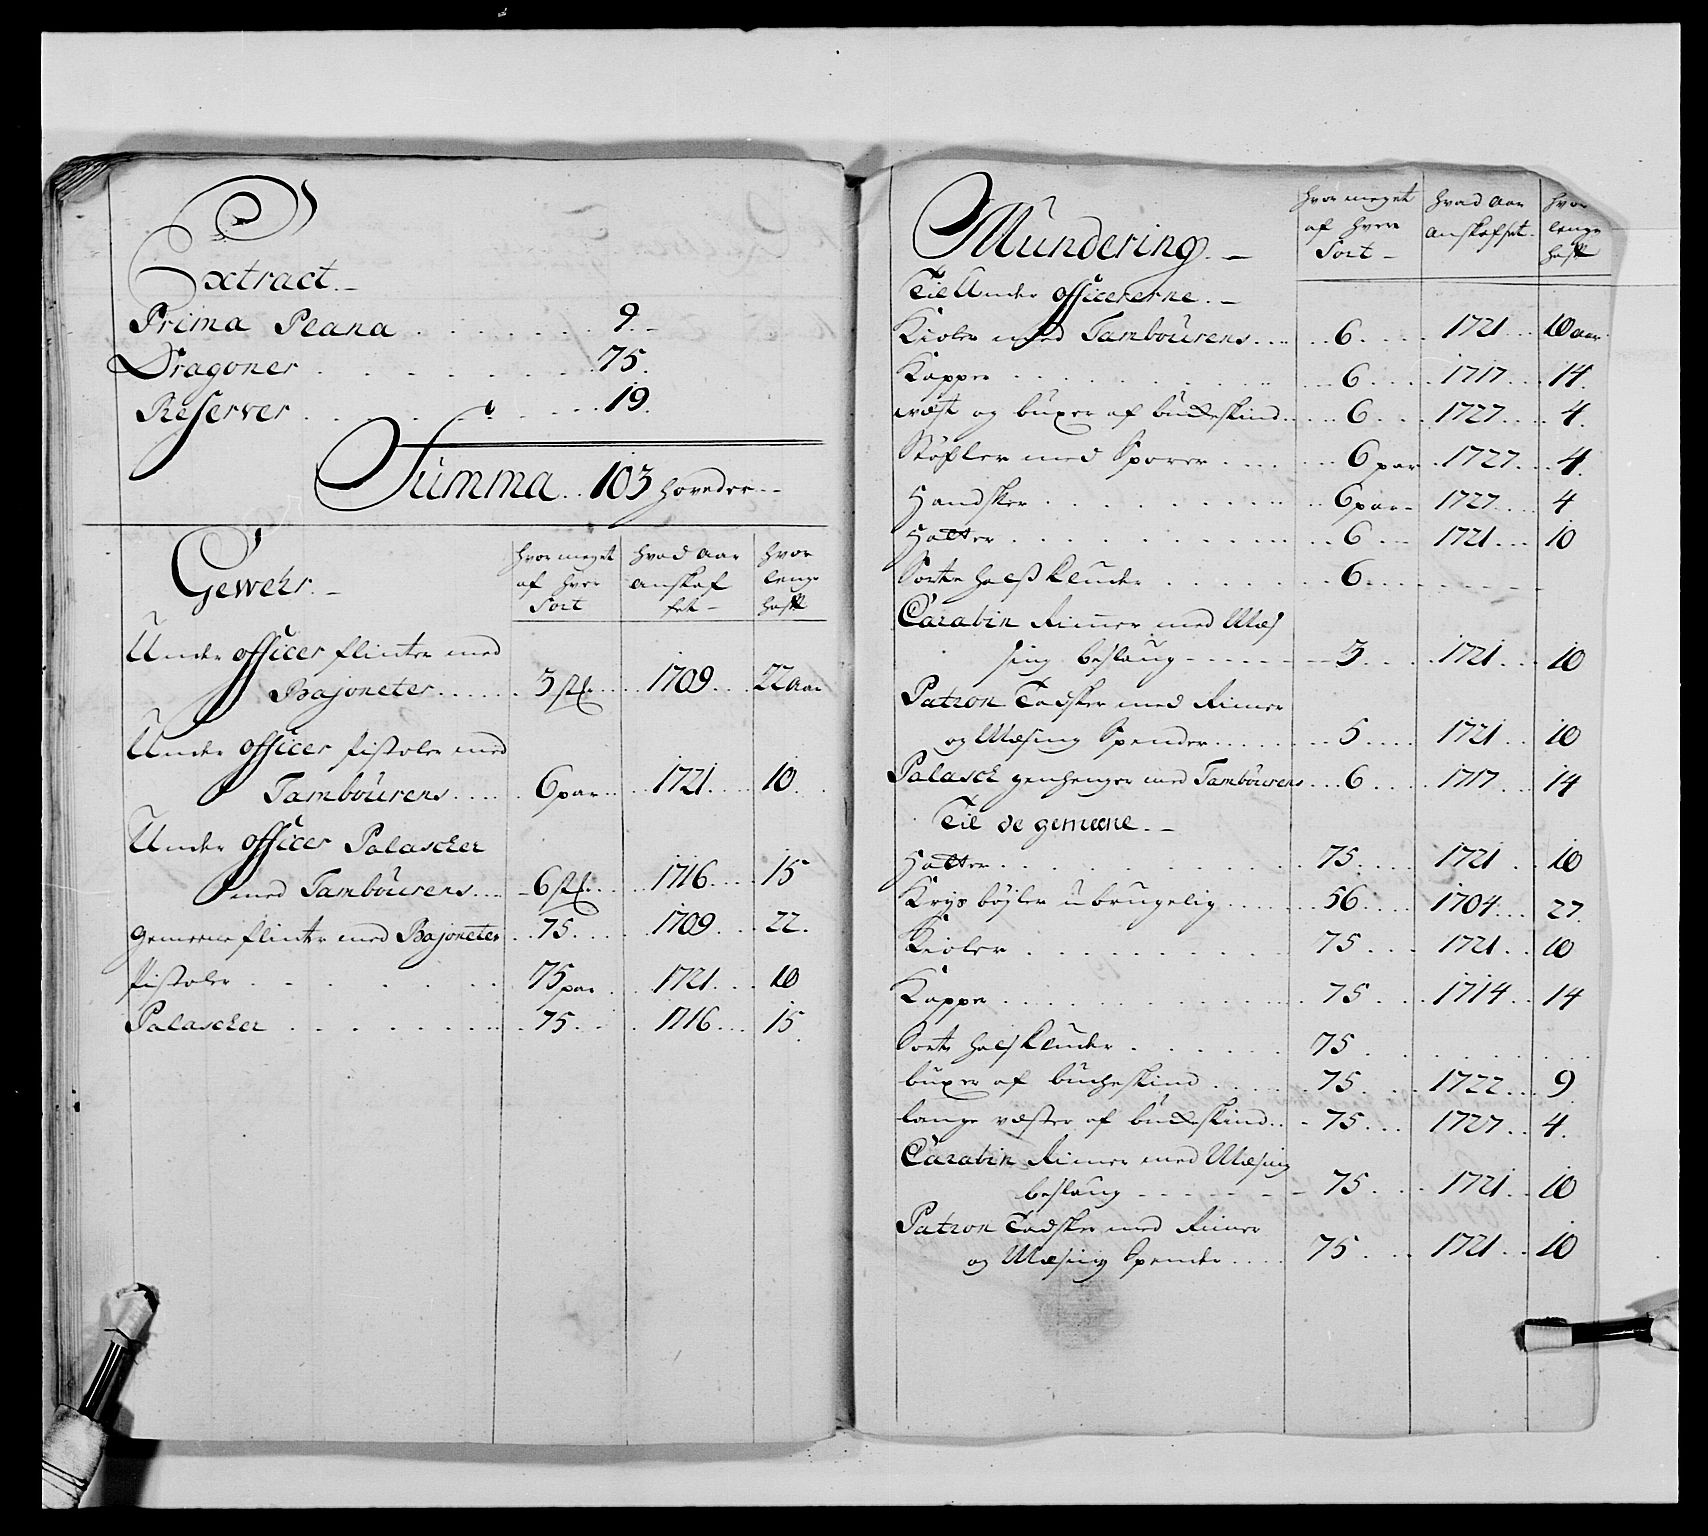 Extract.–
Prima Plana . . . . . . . 9.–
Dragoner . . . . . . . . 75.
Reserver . . . . . . . . 19.
Summa . . 103 hoveder.–
Gewehr.–
hvor meget af hver Sort
hvad aar anskaf fet –
hvor lenge haft
Under officer flinter med
Bajoneter . . . . . 5 stk . . . 1709 . . . 22 aar
Under officer Pistoler med
Tambourens . . . . . 6 par . . . 1721 . . . 10
Under officer Palascher
med Tambourens . . . – 6 stk . . . 1716 . . . 15
gemeene flinte med Bajoneter . . 75 . . . 1709 . . . 22.
Pistoler . . . . . . . 75 par . . 1721 . . . 10
Palascher . . . . . . . 75 . . . 1716 . . . 15
Mundering.–
hvor meget af hver Sort –
hvad aar anskaffet.
hvor lenge haft
Til Under officererne.–
Kioler med Tambourens . . . . . 6 . . . . 1721 . . . 10 aar
Kapper . . . . . . . . . 6 . . . . 1717 . . . 14.
west og buxer af bukkeskind . . . . 6 . . . 1727 . . . . 4.
Støfler med Sporer . . . . . . 6 par . . 1727 . . . 4.
Handsker . . . . . . . . 6 par – 1727 . . . . 4
Hatter . . . . . . . . . . 6 . . . 1721 . . . 10
Sorte halskluder . . . . . . . 6 . . . . . . . –
Carabin Rimer med Mes
sing beslaug – – – – – – 5 . . . . 1721 . . . 10
Patron Tasker med Rimer
og Mæsing Spender . . . . . . . 5 . . . . 1721 . . 10
Palasck genhenger med Tambourens . . . 6 . . . . 1717 . . . 14
Til de gemeene.–
Hatter . . . . . . . . . 75 . . . . 1721 . . 10
Krys bøyler ubrugelig . . . . . . 56 . . . . 1704 . . . 27.
Kioler . . . . . . . . . 75 . . . . 1721 . . 10
Kappe . . . . . . . . . 75 . . . . 1714 . . 14
Sorte halskluder . . . . . . 75 . . . . . . . .
buxer af bucheskind . . . . . 75 . . . . 1722 . . . 9.
lange væster af bukkeskind . . – 75 . . . 1727 . . 4.
Carabin Rimer med Mæsing
beslaug – – – – – – – 75 . . . . 1721 . . 10
Patron Tasker med Rimer
og Mæsing Spender . . . . 75 . . . . 1721 . . 10